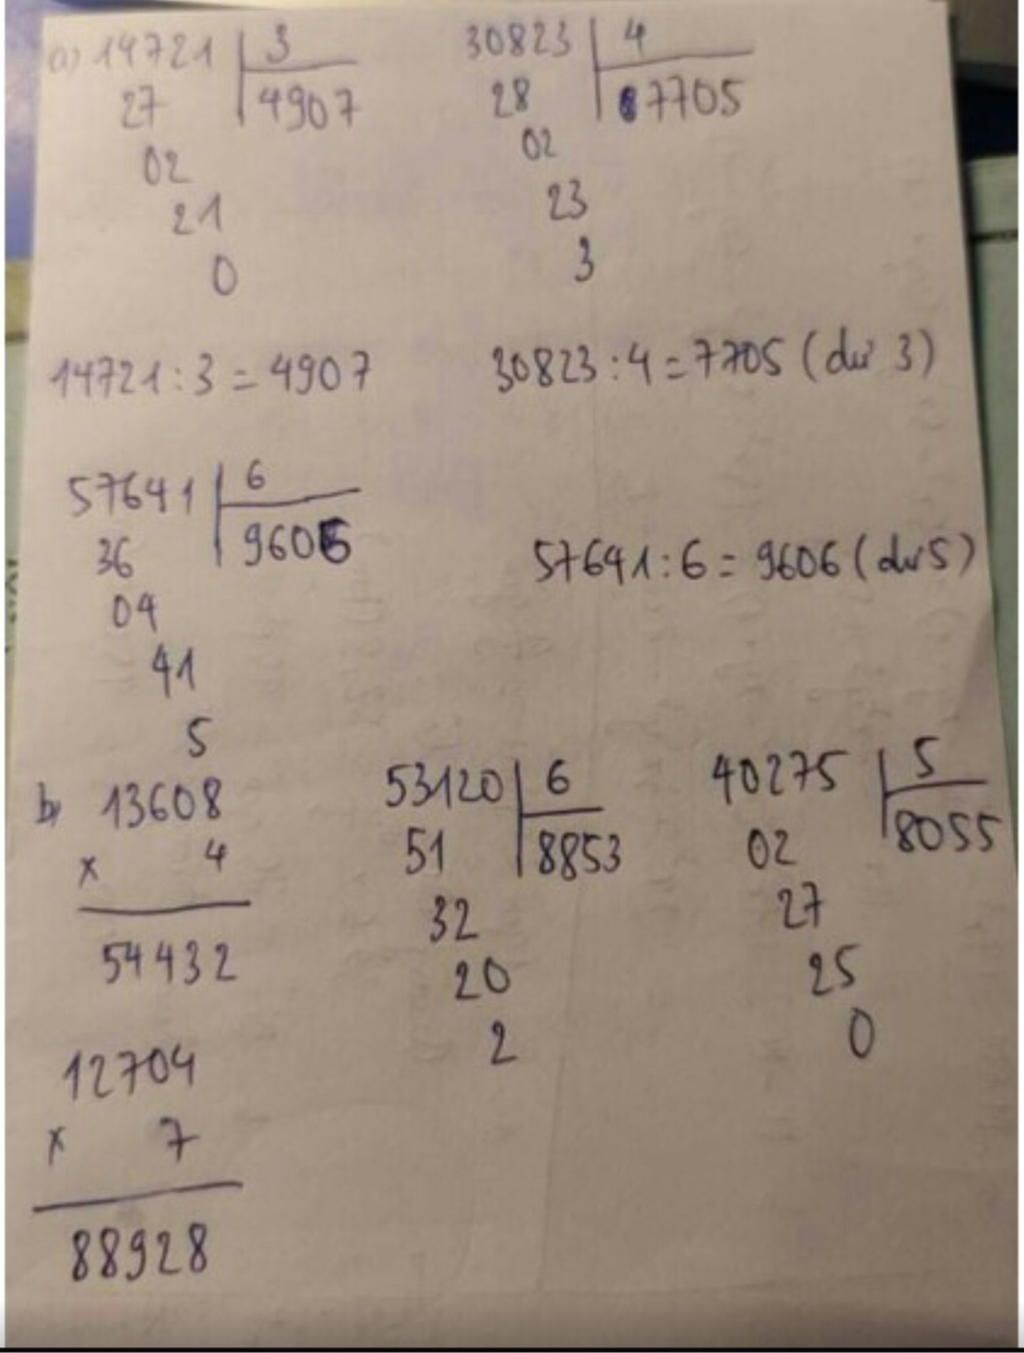 a) 14721 | 3
27 | 4907
02
21
0
30823 | 4
28 | 7705
02
23
3
14721 : 3 = 4907
30823 : 4 = 7705 (dư 3)
57641 | 6
36 | 9606
04
41
5
57641 : 6 = 9606 (dư 5)
b) 13608
x 4
54432
53120 | 6
51 | 8853
32
20
2
40275 | 5
02 | 8055
27
25
0
12704
x 7
88928